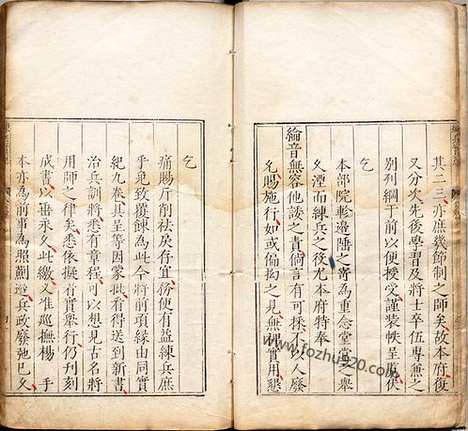 其二三亦庶幾節制之師矣故本府復
又分次先後學習及將士卒伍專無之
別列綱于前以便授受謹裝帙呈
乞
本部院軫邊陲之寄為重念堂堂之舉
久湮而練兵之後尤本府特奉
綸音無容他諉之責倘言有可採不以人廢
允賜施行如或偏拘之見無裨實用懇
乞
痛賜斤削祛戾存宜務使有益練兵庶
乎免致覆餗為此今將前項緣由同實
紀九卷具呈等因蒙批看得送到新書
治兵訓將悉有章程可以想見古名將
用師之律矣悉依擬著實舉行仍刊刻
成書以垂永久此繳又准巡撫楊 手
本亦為前事為照薊遼兵政廢弛已久
www.fozhu920.com